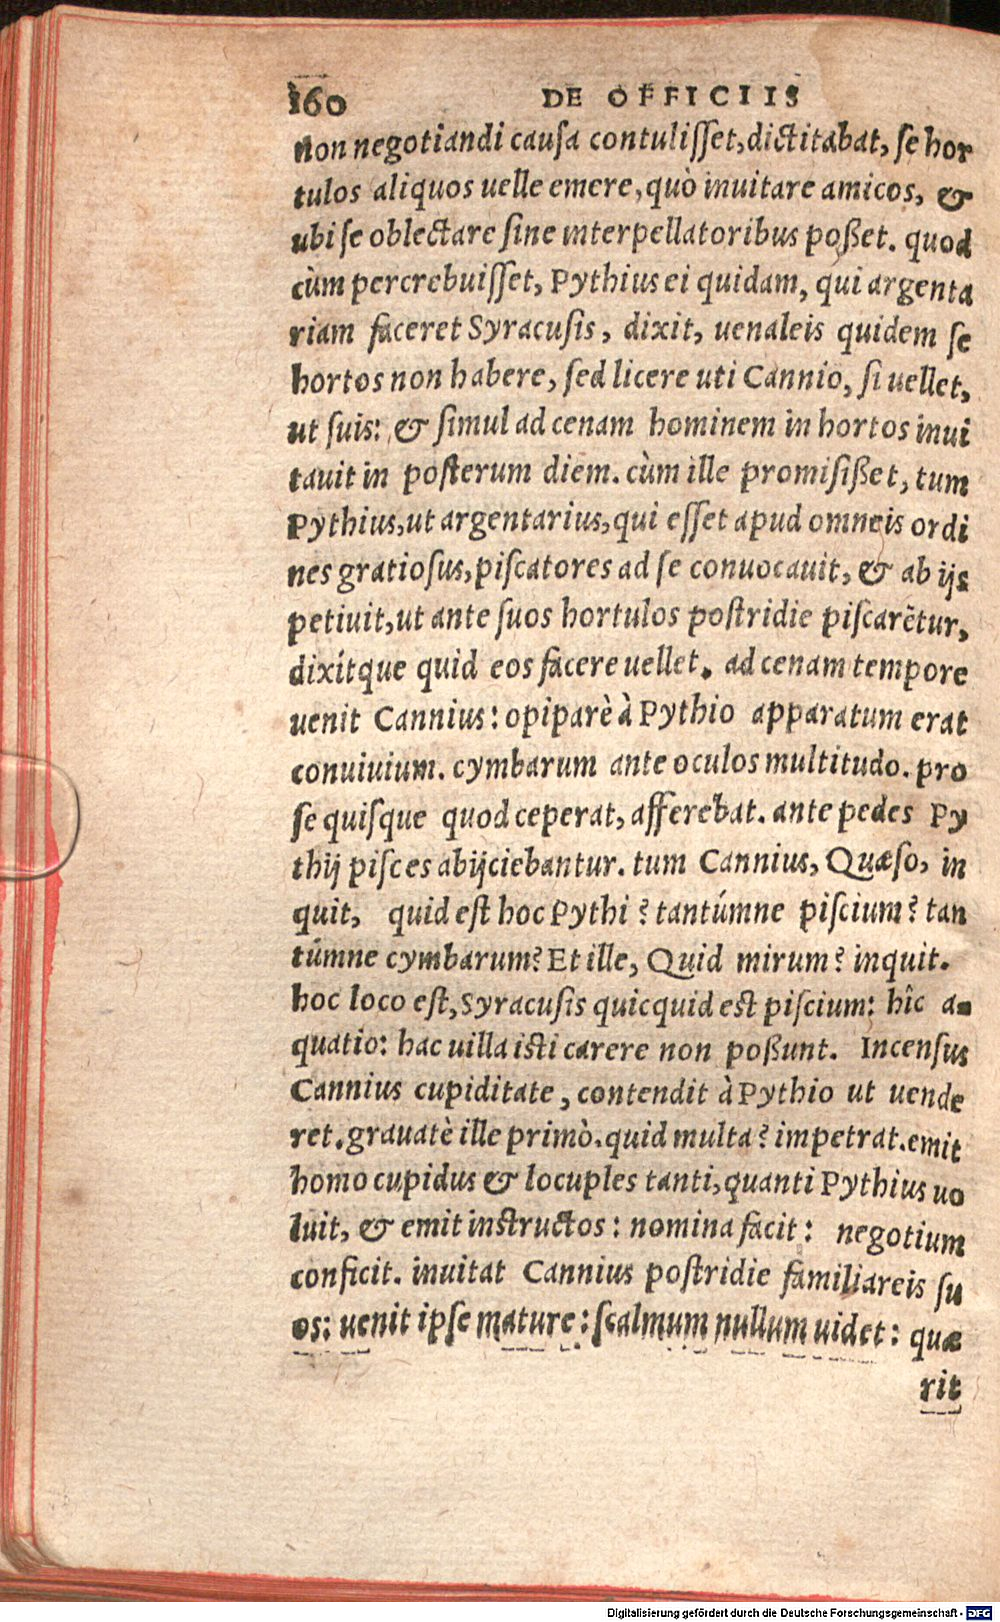 160 DE OFFICIIS
non negotiandi causa contulisset, dictitabat, se hor
tulos aliquos uelle emere, quò inuitare amicos, &
ubi se oblectare sine interpellatoribus poßet. quod
cùm percrebuisset, Pythius ei quidam, qui argenta
riam faceret Syracusis, dixit, uenaleis quidem se
hortos non habere, sed licere uti Cannio, si uellet,
ut suis: & simul ad cenam hominem in hortos inui
tauit in posterum diem. cùm ille promisißet, tum
Pythius, ut argentarius, qui esset apud omneis ordi
nes gratiosus, piscatores ad se conuocauit, & ab ijs
petiuit, ut ante suos hortulos postridie piscarētur,
dixítque quid eos facere uellet. ad cenam tempore
uenit Cannius: opiparè à Pythio apparatum erat
conuiuium. cymbarum ante oculos multitudo. pro
se quisque quod ceperat, afferebat. ante pedes Py
thij pisces abijciebantur. tum Cannius, Quæso, in
quit, quid est hoc Pythi? tantúmne piscium? tan
túmne cymbarum? Et ille, Quid mirum? inquit.
hoc loco est, Syracusis quicquid est piscium: hîc a-
quatio: hac uilla isti carere non poßunt. Incensus
Cannius cupiditate, contendit à Pythio ut uende
ret. grauatè ille primò. quid multa? impetrat. emit
homo cupidus & locuples tanti, quanti Pythius uo
luit, & emit instructos: nomina facit: negotium
conficit. inuitat Cannius postridie familiareis su
os: uenit ipse mature: scalmum nullum uidet: quæ
rit
Digitalisierung gefördert durch die Deutsche Forschungsgemeinschaft - DFG